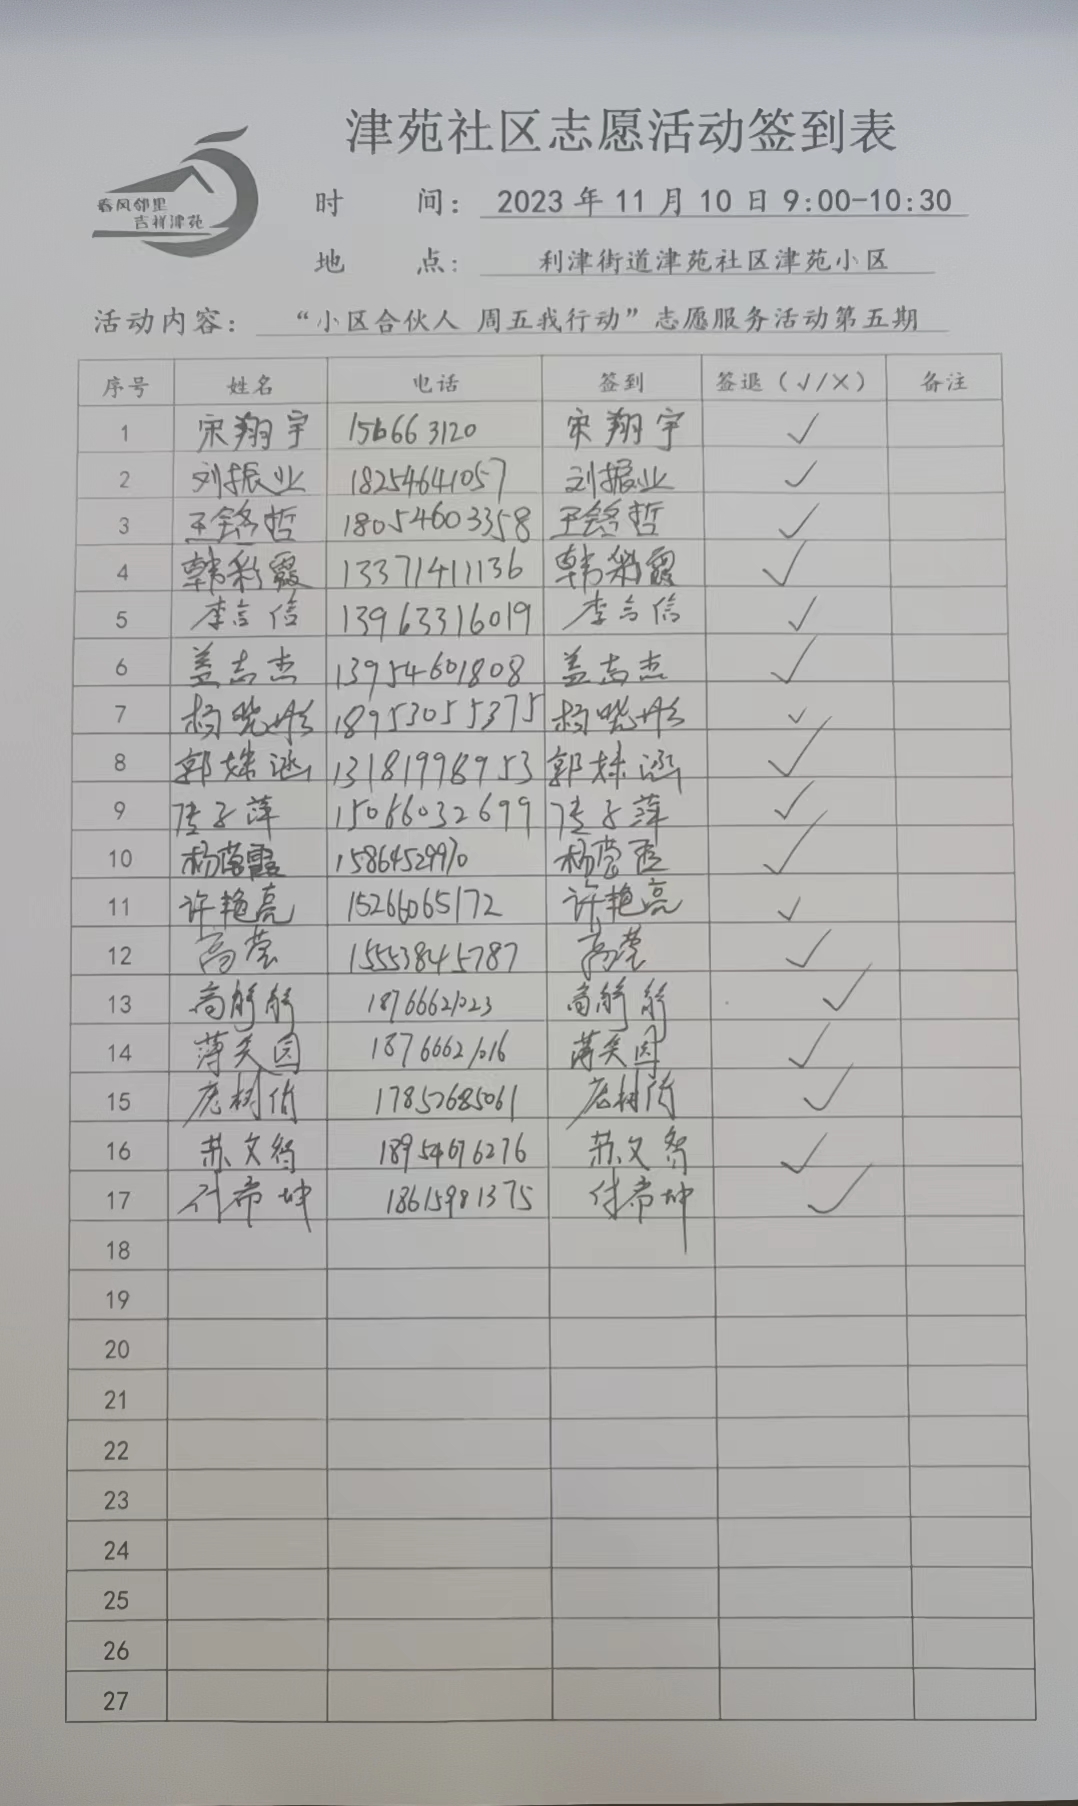 津苑社区志愿活动签到表
春风邻里
吉祥津苑
时 间: 2023 年 11 月 10 日 9:00-10:30
地 点: 利津街道津苑社区津苑小区
活动内容: “小区合伙人 周五我行动”志愿服务活动第五期
序号 姓名 电话 签到 签退(√/×) 备注
1 宋翔宇 156663120 宋翔宇 √
2 刘振业 18254641057 刘振业 √
3 王铭哲 18054603358 王铭哲 √
4 韩彩霞 13371411136 韩彩霞 √
5 李言信 13963316019 李言信 √
6 盖志杰 13954601808 盖志杰 √
7 杨晓彤 18953055375 杨晓彤 √
8 郭姝涵 13181998953 郭姝涵 √
9 子萍 15066032699 子萍 √
10 杨莹霞 15864529970 杨莹霞 √
11 许艳亮 15266065172 许艳亮 √
12 高莹 15553845787 高莹 √
13 高 18766621023 高 √
14 薄 园 18766621016 薄 园 √
15 树 17852685061 树 √
16 苏文智 18954676276 苏文智 √
17 付希坤 18615981375 付希坤 √
18
19
20
21
22
23
24
25
26
27